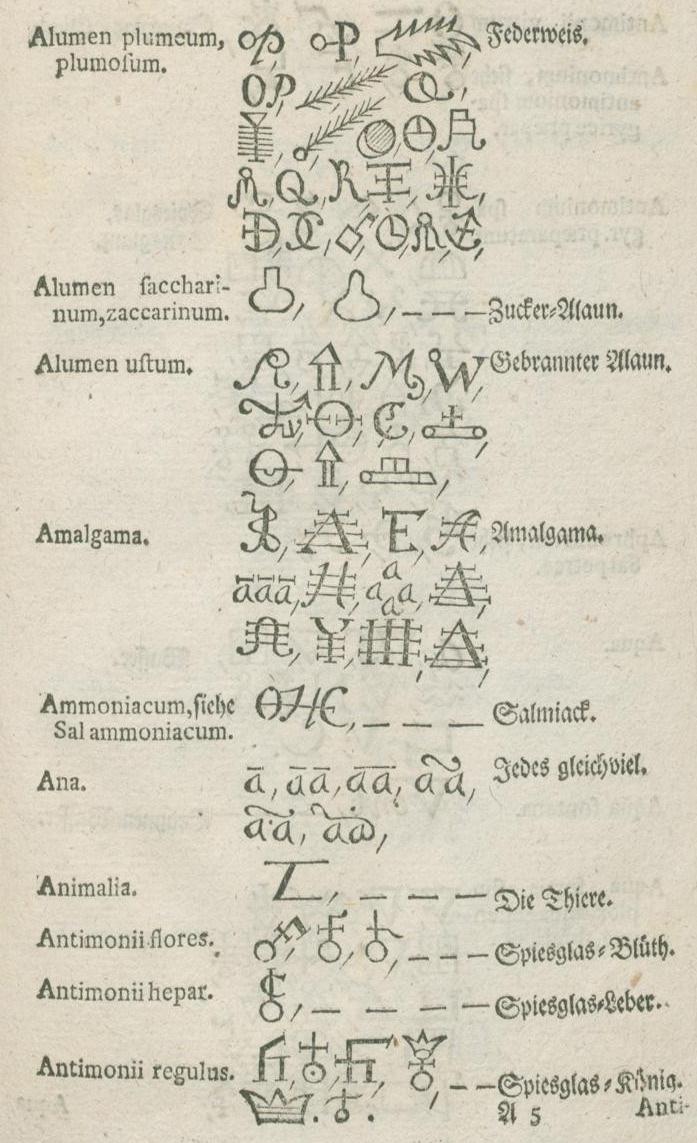 Alumen plumeum, Federweis.
plumoſum.
Alumen ſacchari-
num, zaccarinum. Zucker-Alaun.
Alumen uſtum. Gebrannter Alaun.
Amalgama. Amalgama.
āāā
a
a a
a
Ammoniacum, ſiehe Salmiack.
Sal ammoniacum.
Ana. ā, āā, āā, aã, Jedes gleichviel.
Animalia. Die Thiere.
Antimonii flores. Spiesglas-Blüth.
Antimonii hepar. Spiesglas-Leber.
Antimonii regulus. Spiesglas-König.
A 5 Anti-